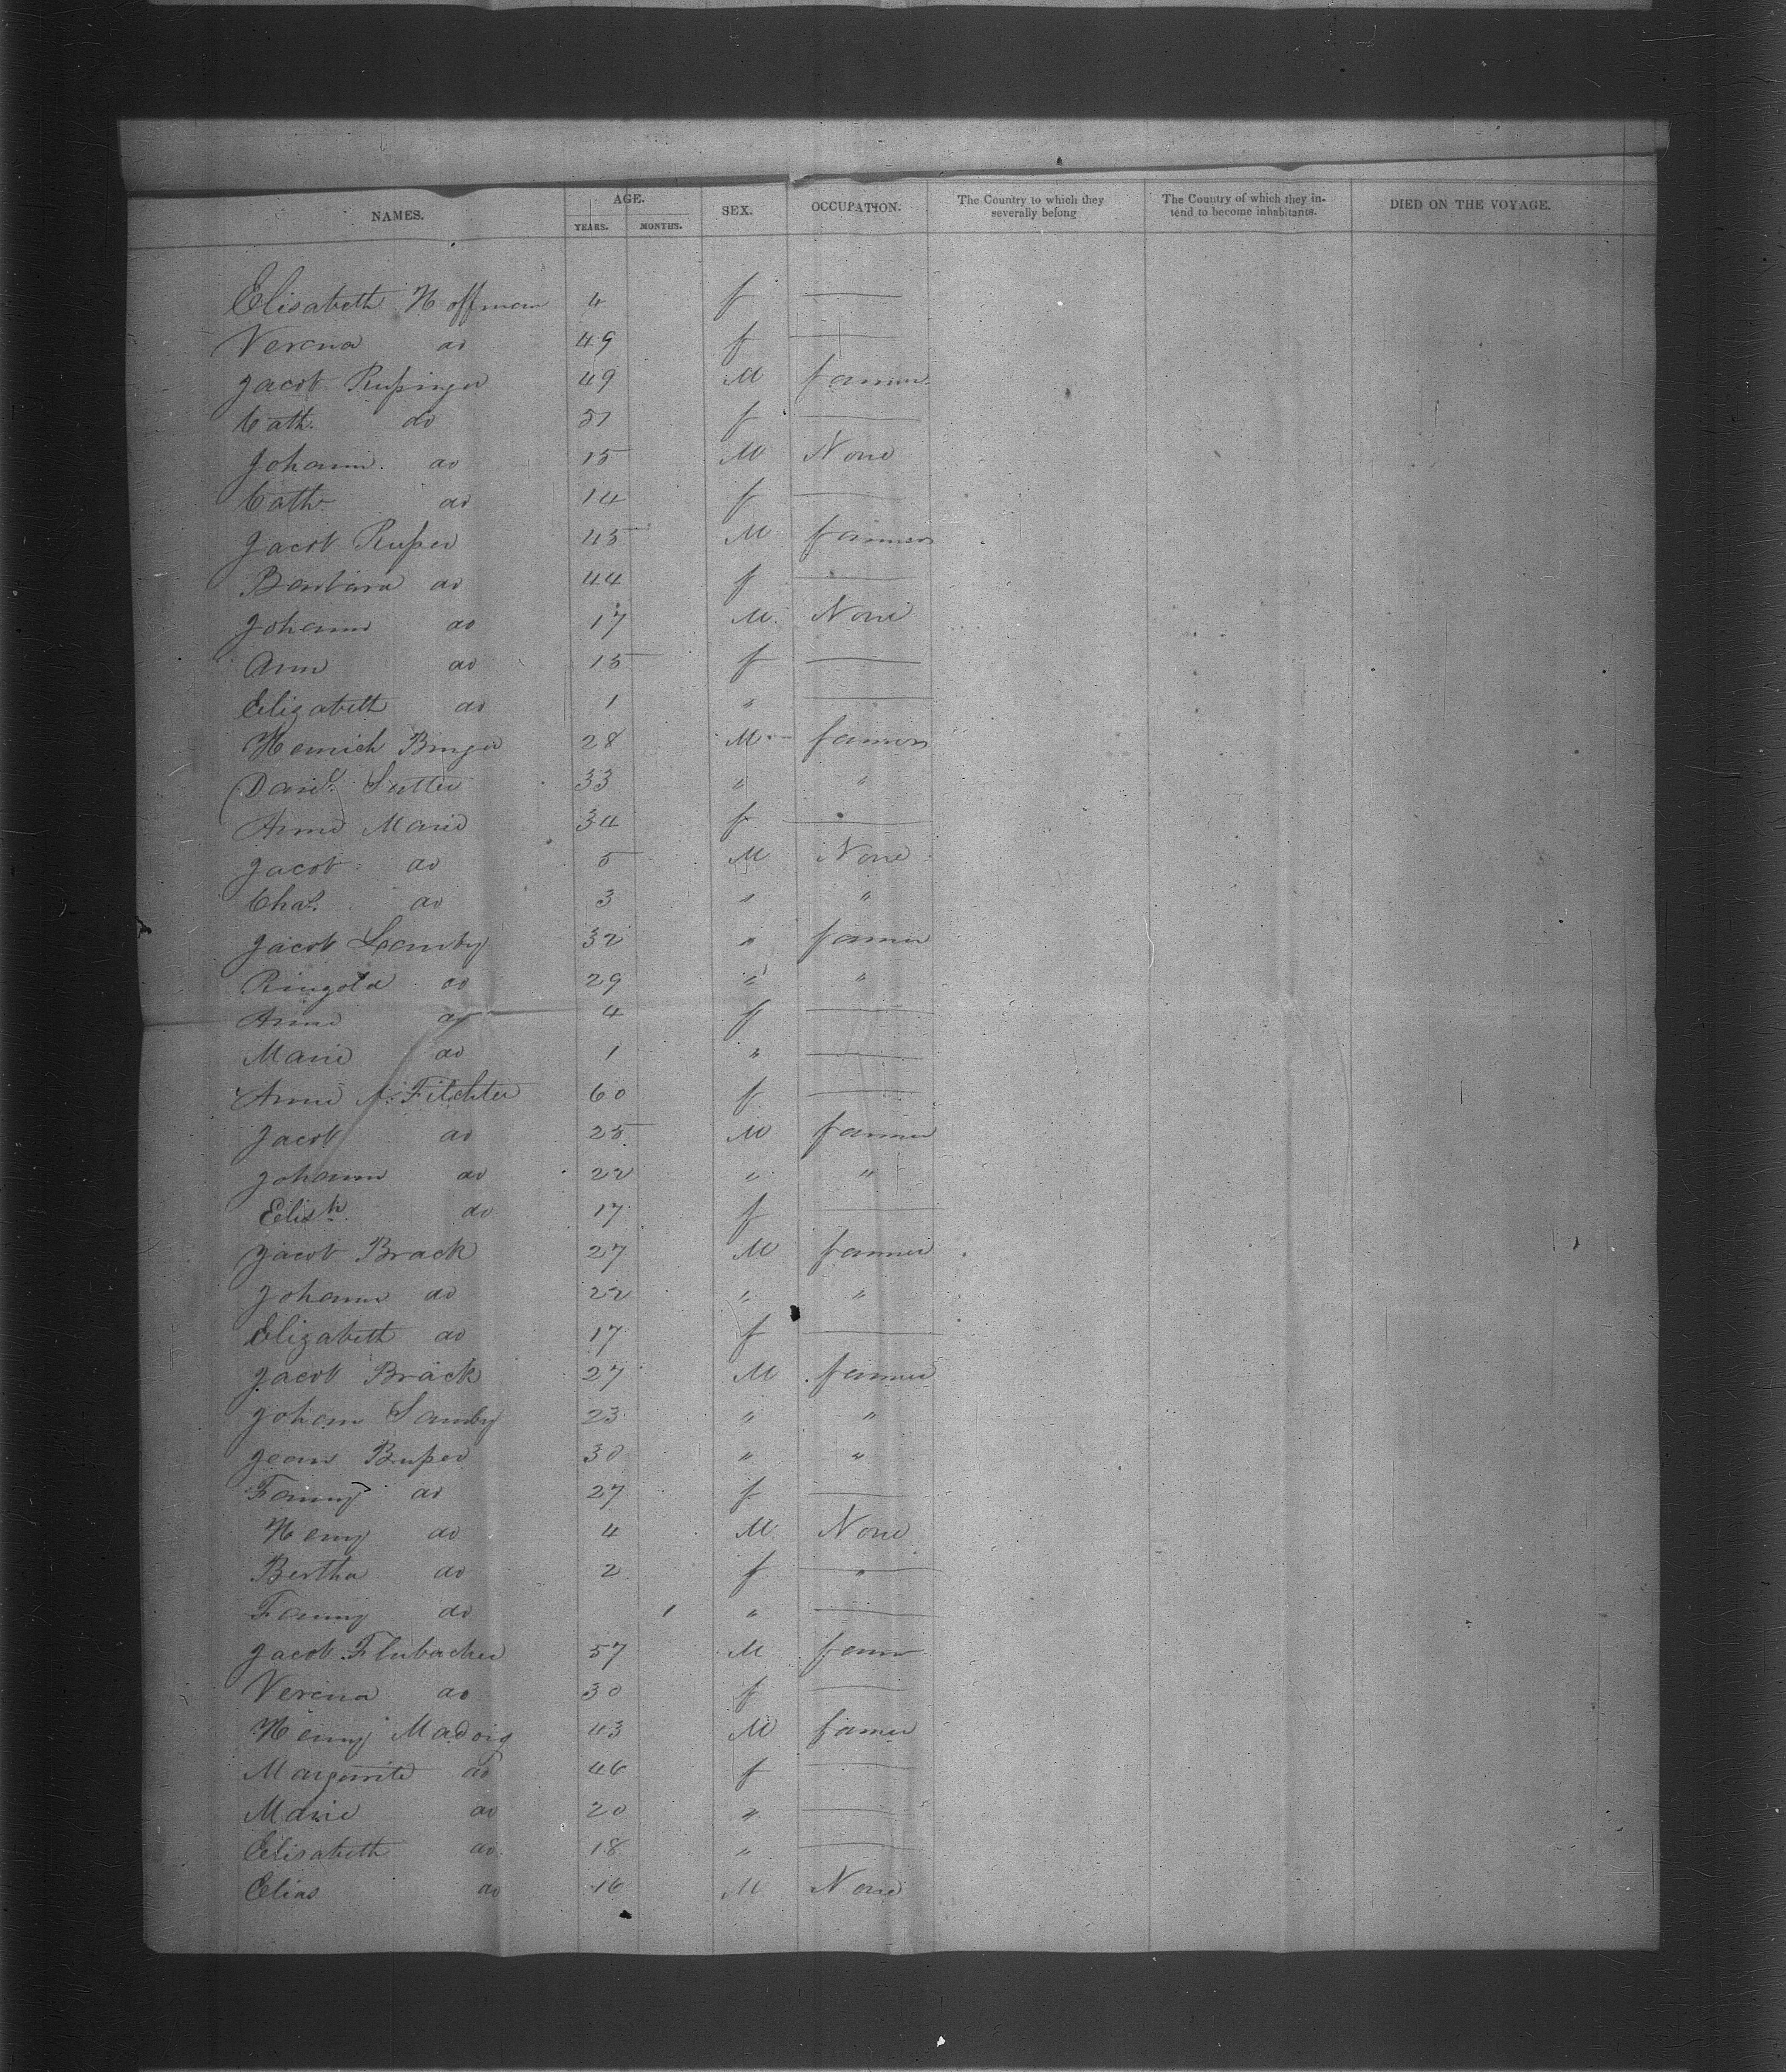 NAMES. AGE. YEARS. MONTHS. SEX. OCCUPATION. The Country to which they severally belong The Country of which they intend to become inhabitants. DIED ON THE VOYAGE.
Elisabeth Hoffman 4 f —
Verena do 49 f —
Jacob Rußinger 49 M farmer
Cath. do 51 f —
Johann. do 15 M None
Cath. do 14 f —
Jacob Rußer 45 M farmer
Barbara do 44 f —
Johann do 17 M. None
Ann do 15 f —
Elizabeth do 1 " —
Heinrich Binger 28 M farmer
Danl. Sutter 33 " "
Anna Maria 34 f —
Jacob do 5 M None
Chas. do 3 " "
Jacob Lamby 32 " farmer
Ringold do 29 " "
Anna do 4 f —
Maria do 1 " —
Anna Fitchter 60 f —
Jacob do 25 M farmer
Johann do 22 " "
Elisth. do 17 f —
Jacob Brack 27 M farmer
Johann do 22 " "
Elizabeth do 17 f —
Jacob Bräck 27 M farmer
Johann Samby 23 " "
Jean Bußer 30 " "
Fanny do 27 f —
Henry do 4 M None
Bertha do 2 f "
Fanny do 1 " —
Jacob Flubacher 57 M farmer
Verena do 30 f —
Henry Madoig 43 M farmer
Marguerite do 46 f —
Marie do 20 " —
Elisabeth do 18 " —
Elias do 16 M None